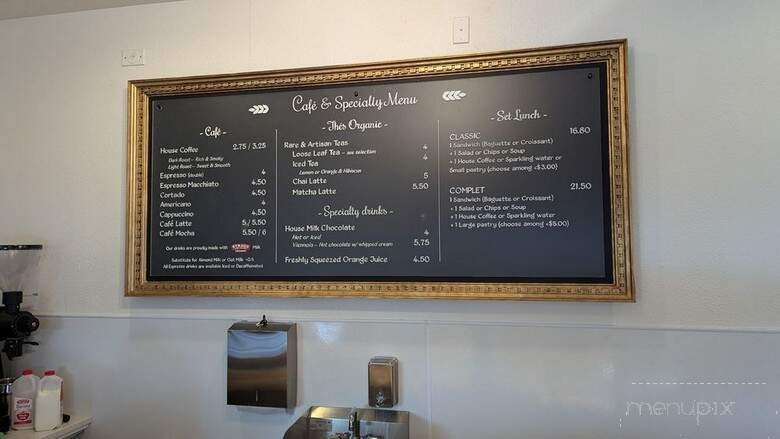 Café & Specialty Menu
- Café -
House Coffee 2.75 / 3.25
Dark Roast - Rich & Smoky
Light Roast - Sweet & Smooth
Espresso (double) 4
Espresso Macchiato 4.50
Cortado 4.50
Americano 4
Cappuccino 4.50
Café Latte 5 / 5.50
Café Mocha 5.50 / 6
Our drinks are proudly made with Milk
Substitute for Almond Milk or Oat Milk +0.5
All Espresso drinks are available Iced or Decaffeinated
- Thés Organic -
Rare & Artisan Teas
Loose Leaf Tea - see selection 4
Iced Tea 4
Lemon or Orange & Hibiscus
Chai Latte 5
Matcha Latte 5.50
- Specialty drinks -
House Milk Chocolate 4
Hot or Iced
Viennois - Hot chocolate w/ whipped cream 5.75
Freshly Squeezed Orange Juice 4.50
- Set Lunch -
CLASSIC 16.80
1 Sandwich (Baguette or Croissant)
+ 1 Salad or Chips or Soup
+ 1 House Coffee or Sparkling water or
Small pastry (choose among <$3.00)
COMPLET 21.50
1 Sandwich (Baguette or Croissant)
+ 1 Salad or Chips or Soup
+ 1 House Coffee or Sparkling water
+ 1 Large pastry (choose among <$5.00)
menupix